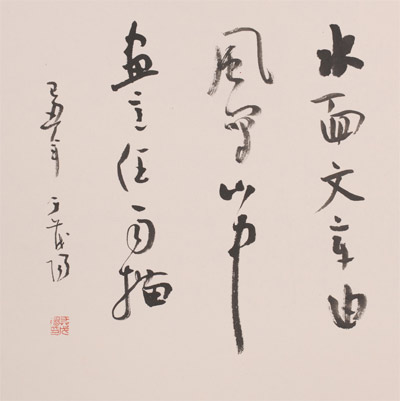 水面文章由
風寫山中
畫意任雨描
己丑年 于茂陽